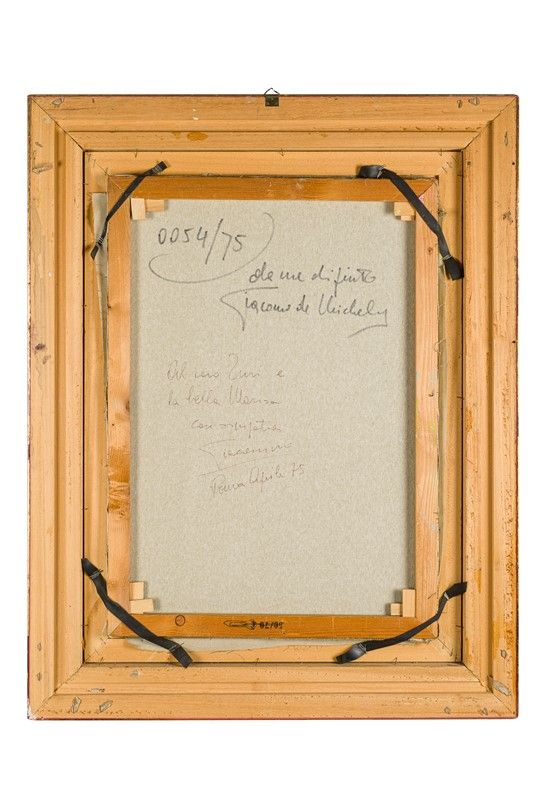 0054/75
da me dipinto
Giacomo de Michely
Al caro Turi e
la bella Marisa
con simpatia
Giacomino
Roma Aprile 75
50/70